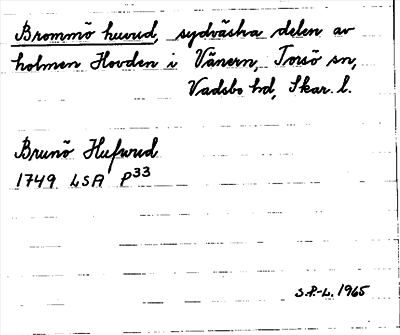 Brommö huvud, sydvästra delen av
holmen Hovden i Vänern, Torsö sn,
Vadsbo hd, Skar. l.
Brunö Hufwud
1749 LSA P33
S.P-L. 1965